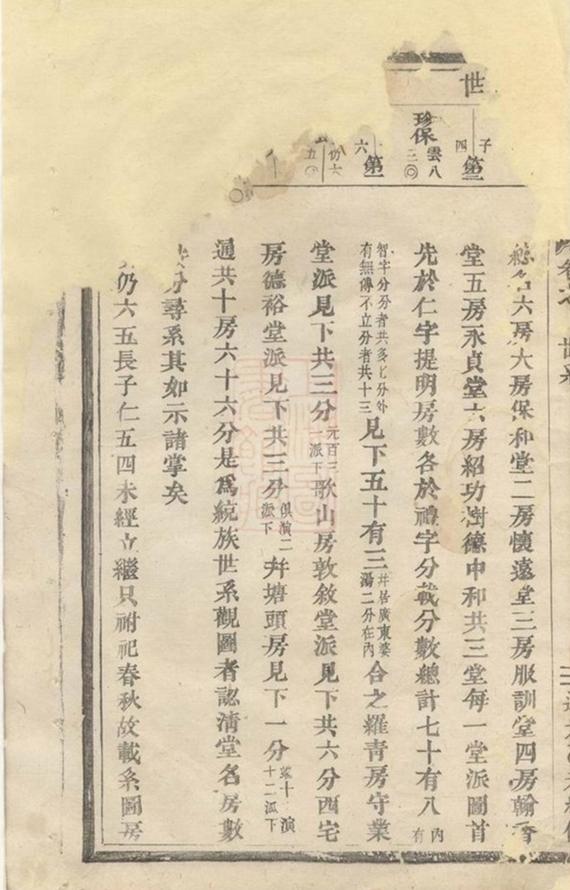 世
子
四 第三
珍保 雲八
三
六 第一
八 仍六
五
總名六房大房保和堂二房懷遠堂三房服訓堂四房翰香
堂五房永貞堂六房紹功樹德中和共三堂每一堂派圖首
先於仁字提明房數各於禮字分載分數總計七十有八內有
智字分分者共多七分外有無傳不立分者共十三見下五十有三并居廣東婆湯二分在內合之羅青房守業
堂派見下共三分元百三派下歌山房敦敘堂派見下共六分西宅
房德裕堂派見下共三分俱演二派下并塘頭房見下一分演十二派下
通共十房六十六分是爲統族世系觀圖者認清堂名房數
分尋系其如示諸掌矣
仍六五長子仁五四未經立繼只祔祀春秋故載系圖房